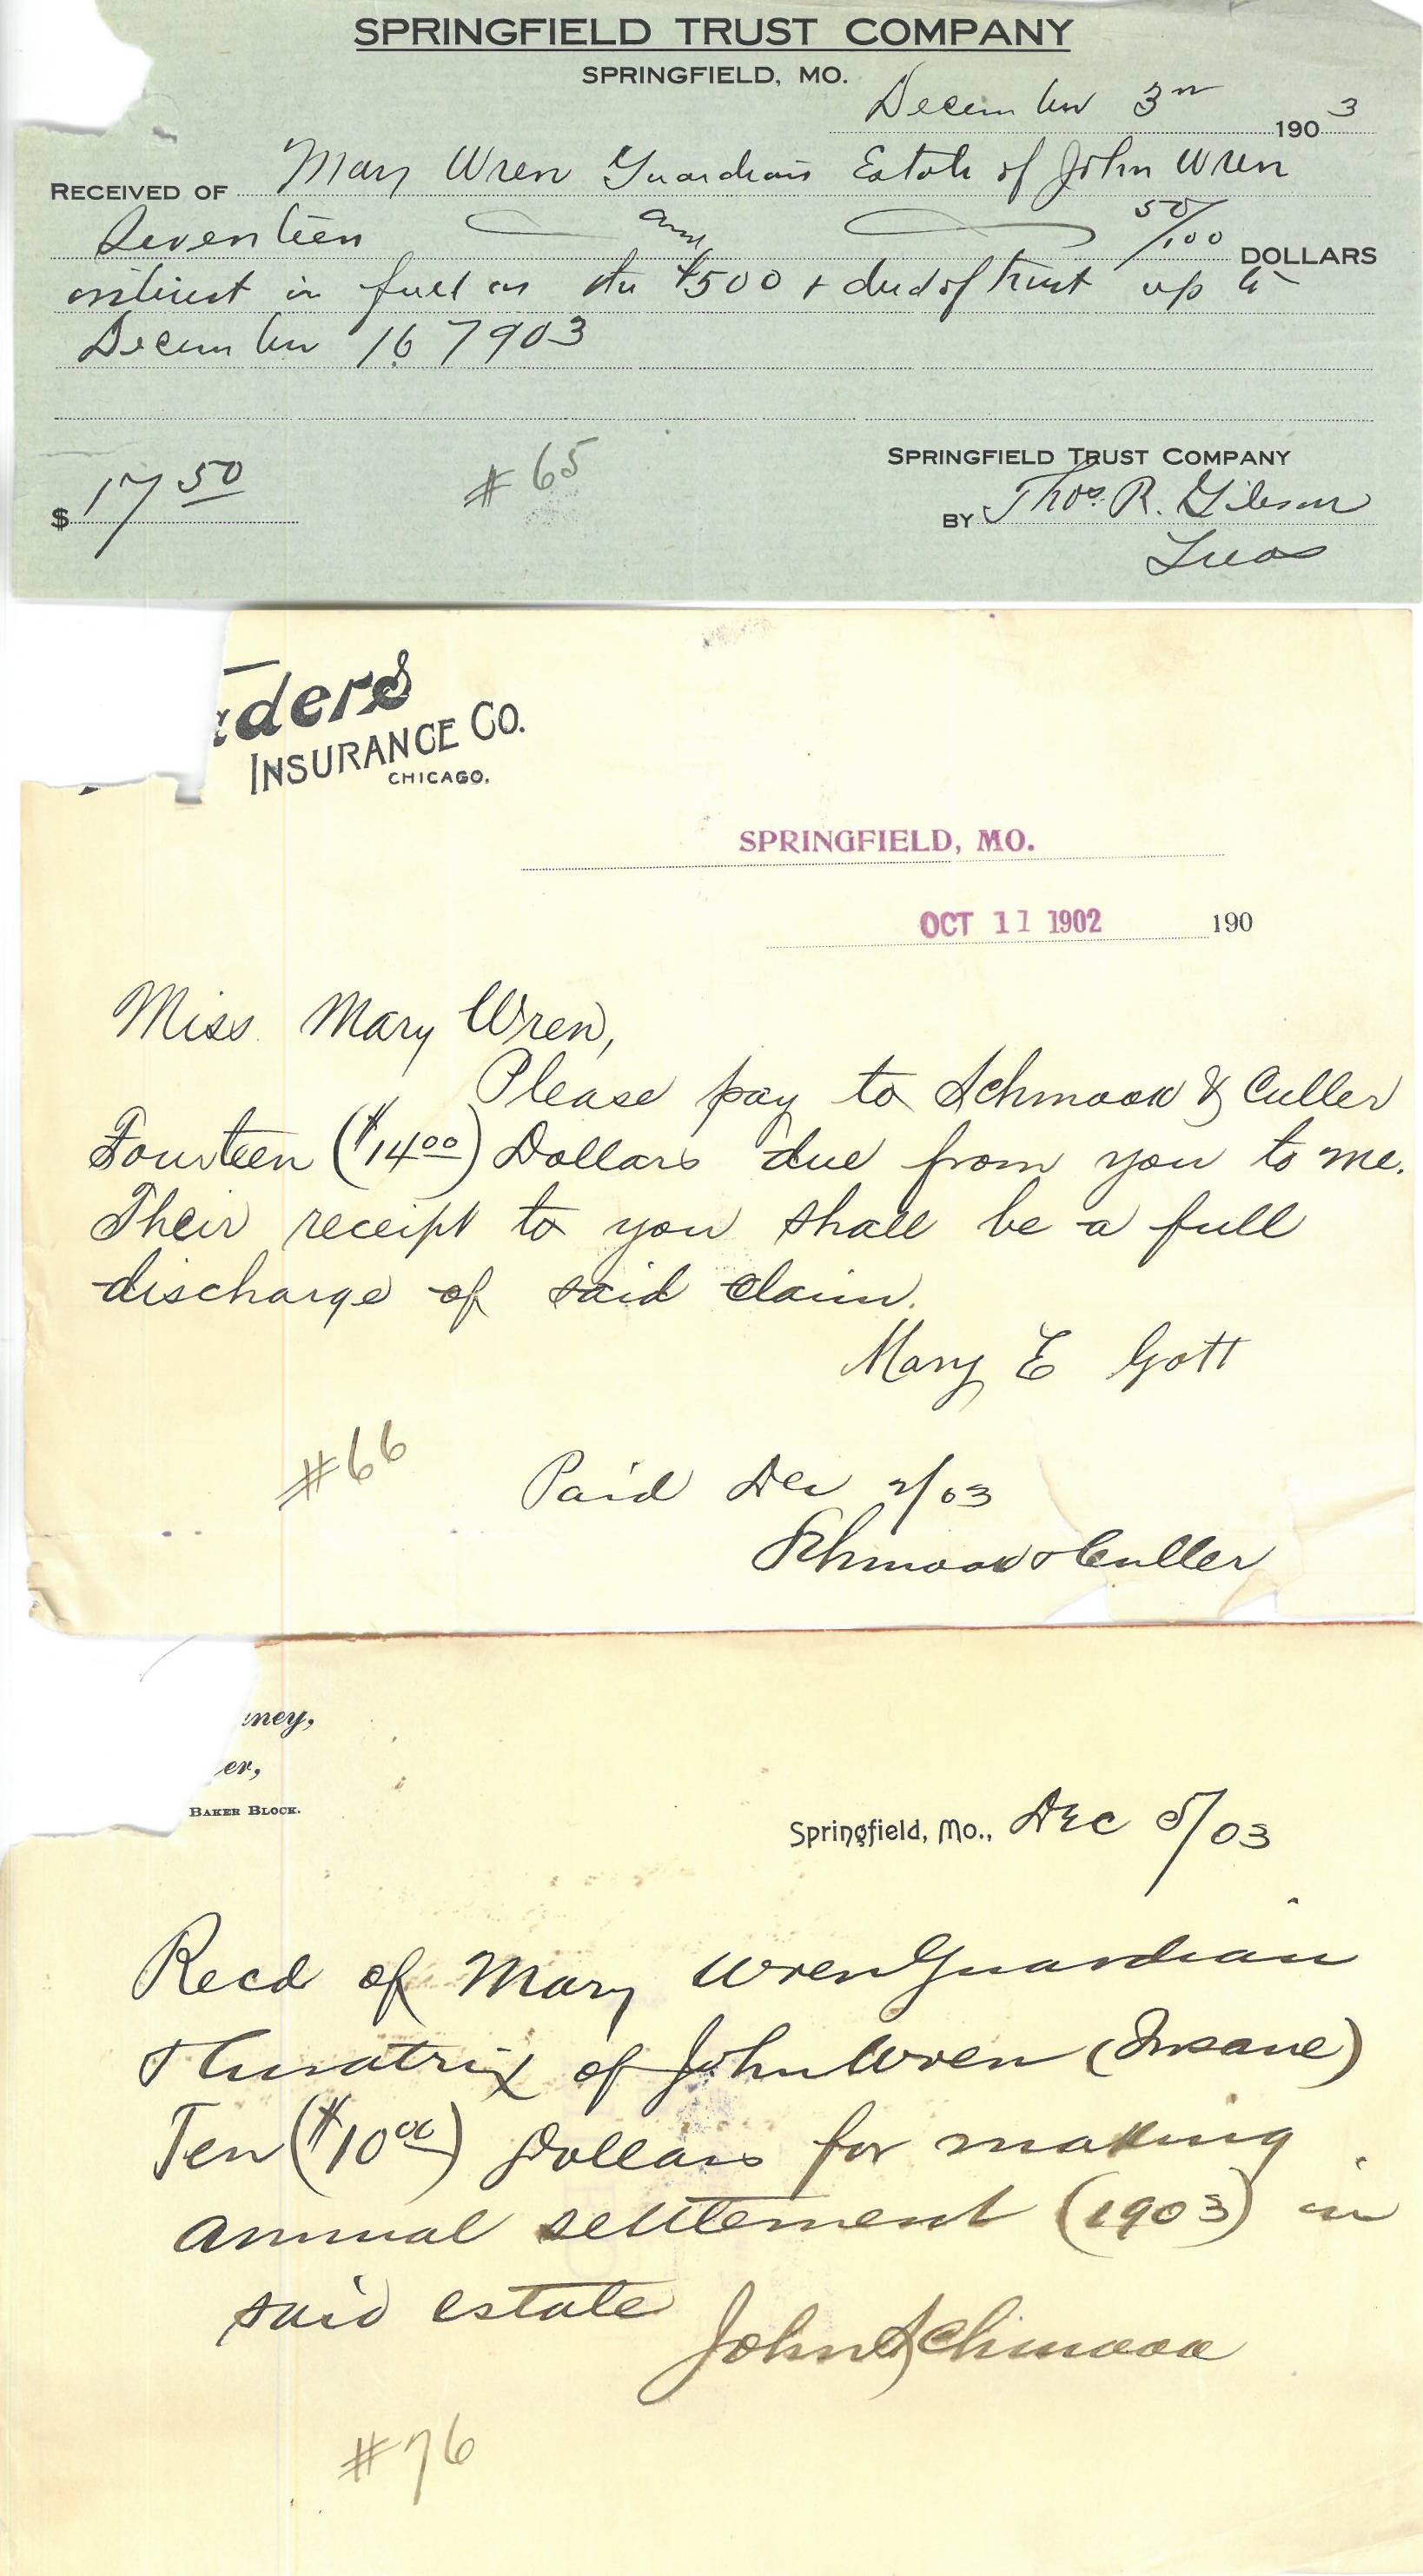 SPRINGFIELD TRUST COMPANY
SPRINGFIELD, MO.
December 3rd 1903
RECEIVED OF Mary Wren Guardian Estate of John Wren
Seventeen and 50/100 DOLLARS
interest in full on the $500 + deed of trust up to
December 16 1903
SPRINGFIELD TRUST COMPANY
$ 17 50 # 65
BY Thos. R. Gibson
Treas
ders
INSURANCE CO.
CHICAGO.
SPRINGFIELD, MO.
OCT 11 1902 190
Miss. Mary Wren,
Please pay to Schmook & Culler
Fourteen ($14 00) Dollars due from you to me.
Their receipt to you shall be a full
discharge of said claim.
Mary E Gott
#66
Paid Dec 2/03
Schmook & Culler
ney,
er,
BAKER BLOCK.
Springfield, Mo., Dec 5/03
Recd of Mary Wren Guardian
& Curatrix of John Wren (Insane)
Ten ($10 00) Dollars for making
annual settlement (1903) in
said estate
John Schmook
#76